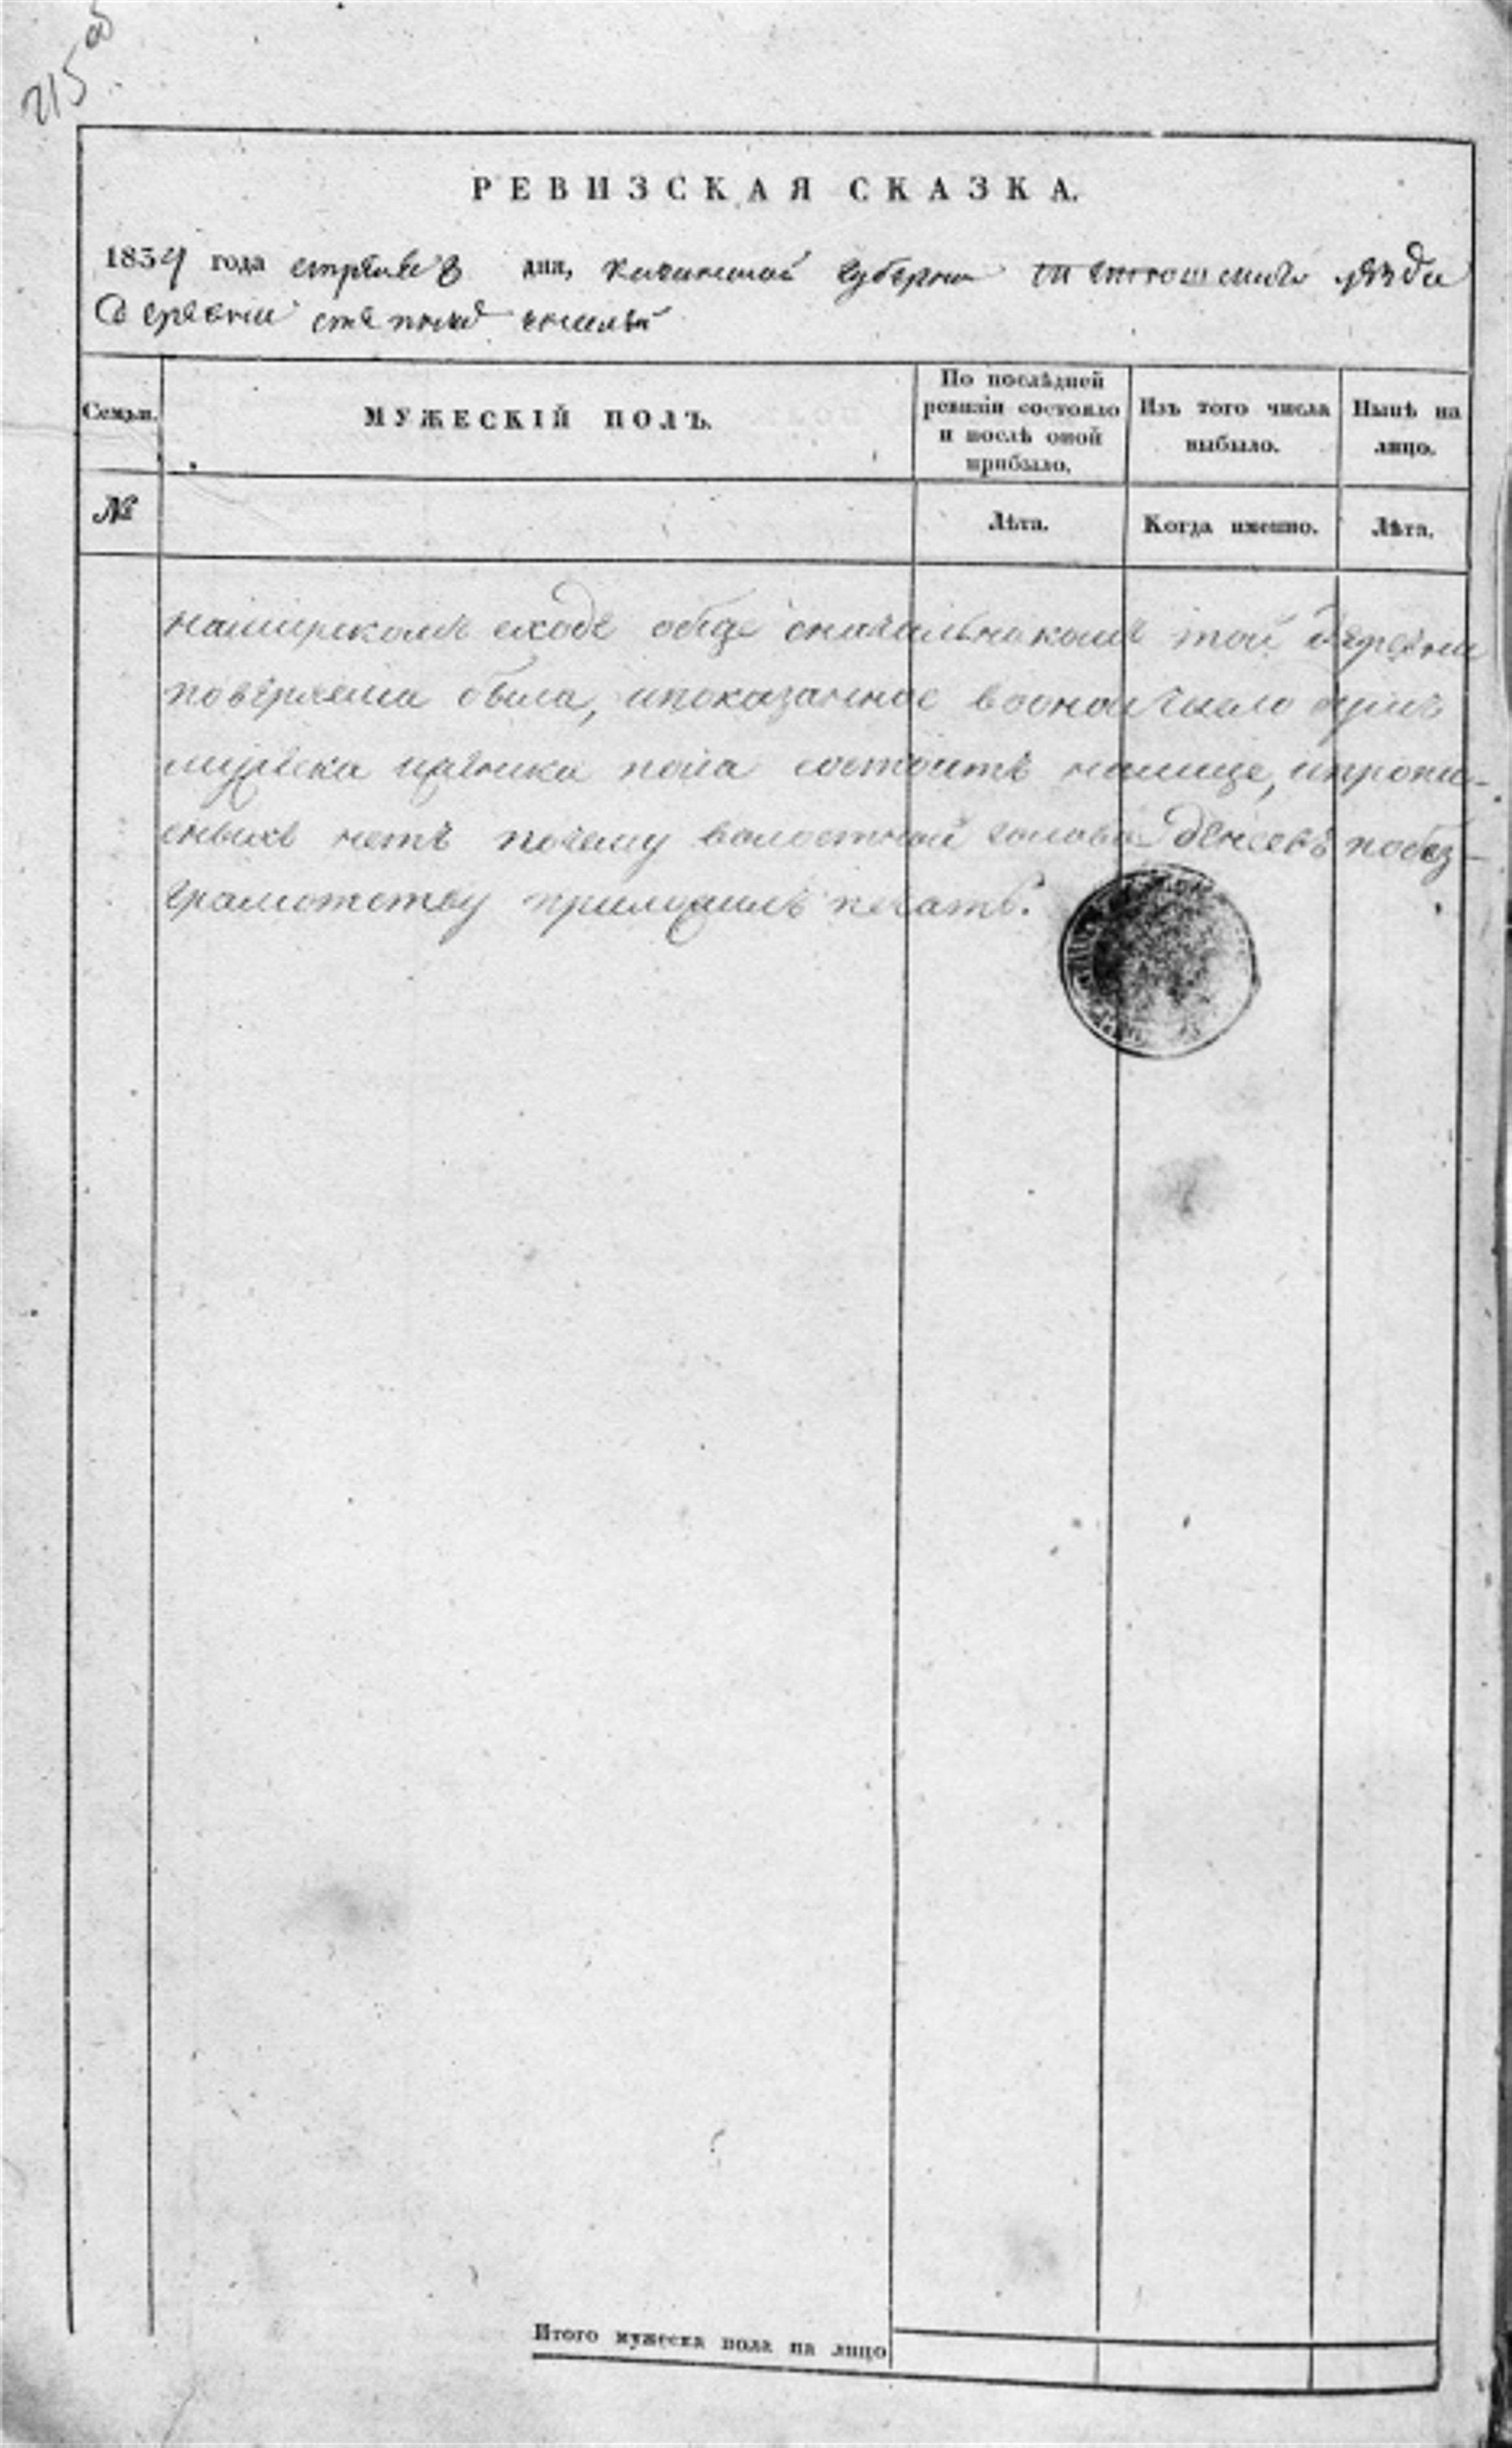 215 об
РЕВИЗСКАЯ СКАЗКА.
1834 года дня, Казанской губернии уѣзда
Деревни
Семьи. МУЖЕСКІЙ ПОЛЪ. По послѣдней ревизіи состояло и послѣ оной прибыло. Изъ того числа выбыло. Нынѣ на лицо.
№ Лѣта. Когда именно. Лѣта.
намирскомъ сходе обще той деревни
поверяема была, ипоказанное вооной число душъ
мужеска иженска пола состоитъ налице, ипропи-
сныхъ нетъ почему волостной голова побез-
грамотству приложилъ печать.
Итого мужеска пола на лицо